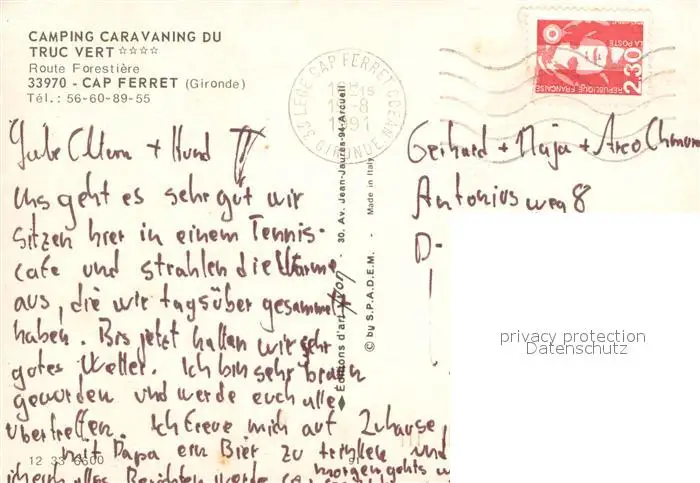 CAMPING CARAVANING DU
TRUC VERT ☆☆☆☆
Route Forestière
33970 - CAP FERRET (Gironde)
Tél.: 56-60-89-55
33 LEGE CAP FERRET OCEAN
1991
GIRONDE
LA POSTE
2,30
REPUBLIQUE FRANÇAISE
Liebe Eltern + Hund
Uns geht es sehr gut wir
sitzen hier in einem Tennis-
cafe und strahlen die Wärme
aus, die wir tagsüber gesammelt
haben. Bis jetzt hatten wir sehr
gutes Wetter. Ich bin sehr braun
geworden und werde euch alle
übertreffen. Ich freue mich auf Zuhause
mit Papa ein Bier zu trinken und
alles Berichten werde
morgen gehts
Éditions d'art Yvon - 30, Av. Jean-Jaurès-94-Arcueil
© by S.P.A.D.E.M. - Made in Italy
Gerhard + Maja + Arco
Antonius weg 8
D-
privacy protection
Datenschutz
12 33 6600